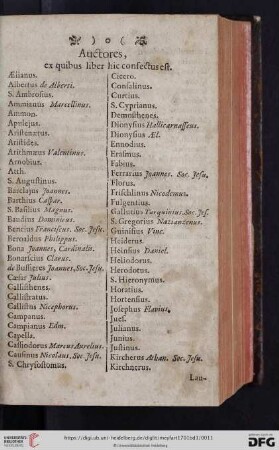 ) o (
Auctores,
ex quibus liber hic confectus est.
Ælianus.
Albertus de Albertis.
S. Ambrosius.
Ammianus Marcellinus.
Ammon.
Apulejus.
Aristenætus.
Aristides.
Arithmæus Valentinus.
Arnobius.
Ath.
S. Augustinus.
Barclajus Joannes.
Barthius Caspar.
S. Basilius Magnus.
Baudius Dominicus.
Bencius Franciscus. Soc. Jesu.
Beroaldus Philippus.
Bona Joannes, Cardinalis.
Bonarscius Clarus.
de Bussieres Joannes, Soc. Jesu.
Cæsar Julius.
Callisthenes.
Callistratus.
Callistus Nicephorus.
Campanus.
Campianus Edm.
Capella.
Cassiodorus Marcus Aurelius.
Causinus Nicolaus. Soc. Jesu.
S. Chrysostomus.
Cicero.
Consalinus.
Curtius.
S. Cyprianus.
Demosthenes.
Dionysius Hallicarnasseus.
Dionysius Æl.
Ennodius.
Erasmus.
Fabens.
Ferrarius Joannes. Soc. Jesu.
Florus.
Frischlinus Nicodemus.
Fulgentius.
Gallutius Tarquinius. Soc. Jes.
S. Gregorius Nazianzenus.
Guinisius Vinc.
Heiderus.
Heinsius Daniel.
Heliodorus.
Herodorus.
S. Hieronymus.
Horatius.
Hortensius.
Josephus Flavius.
Juel.
Julianus.
Junius.
Justinus.
Kircherus Athan. Soc. Jesu.
Kirchnerus.
Lau-
http://digi.ub.uni-heidelberg.de/diglit/meyfart1701bd1/0011